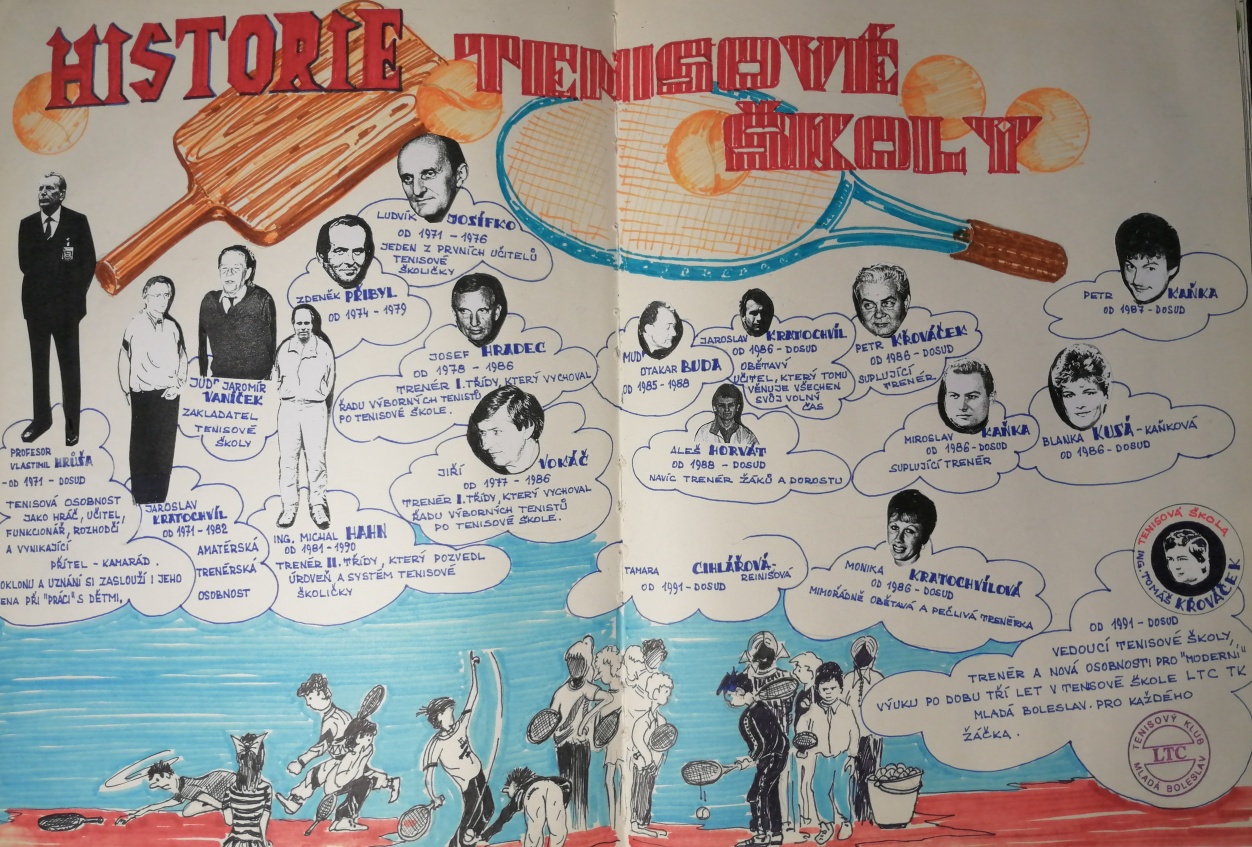 HISTORIE TENISOVÉ
ŠKOLY
LUDVÍK JOSÍFKO
OD 1971 - 1976
JEDEN Z PRVNÍCH UČITELŮ
TENISOVÉ
ŠKOLIČKY
ZDENĚK PŘIBYL
OD 1974 - 1979
JOSEF HRADEC
OD 1978 - 1986
TRENÉR I. TŘÍDY, KTERÝ VYCHOVAL
ŘADU VÝBORNÝCH TENISTŮ
PO TENISOVÉ ŠKOLE.
JUDr JAROMÍR
VANÍČEK
ZAKLADATEL
TENISOVÉ
ŠKOLY
JIŘÍ VOKÁČ
OD 1977 - 1986
TRENÉR I. TŘÍDY, KTERÝ VYCHOVAL
ŘADU VÝBORNÝCH TENISTŮ
PO TENISOVÉ ŠKOLE.
PROFESOR
VLASTIMIL HRŮŠA
- OD 1971 - DOSUD
TENISOVÁ OSOBNOST
JAKO HRÁČ, UČITEL,
FUNKCIONÁŘ, ROZHODČÍ
A VYNIKAJÍCÍ
PŘÍTEL - KAMARÁD.
OKLONU A UZNÁNÍ SI ZASLOUŽÍ I JEHO
ENA PŘI "PRÁCI" S DĚTMI,
JAROSLAV
KRATOCHVÍL
OD 1971 - 1982
AMATÉRSKÁ
TRENÉRSKÁ
OSOBNOST
ING. MICHAL HAHN
OD 1981 - 1990
TRENÉR II. TŘÍDY, KTERÝ POZVEDL
ÚROVEŇ A SYSTÉM TENISOVÉ
ŠKOLIČKY
MUD
OTAKAR BUDA
OD 1985 - 1988
JAROSLAV KRATOCHVÍL
OD 1986 - DOSUD
OBĚTAVÝ
UČITEL, KTERÝ TOMU
VĚNUJE VŠECHEN
SVŮJ VOLNÝ
ČAS
PETR KŘOVÁČEK
OD 1986 - DOSUD
SUPLUJÍCÍ
TRENÉR
PETR KAŇKA
OD 1987 - DOSUD
ALEŠ HORVÁT
OD 1988 - DOSUD
NAVÍC TRENÉR ŽÁKŮ A DOROSTU
MIROSLAV KAŇKA
OD 1986 - DOSUD
SUPLUJÍCÍ TRENÉR
BLANKA KUSÁ - KAŇKOVÁ
OD 1986 - DOSUD
TAMARA CIHLÁŘOVÁ-
REINIŠOVÁ
OD 1991 - DOSUD
MONIKA KRATOCHVÍLOVÁ
OD 1986 - DOSUD
MIMOŘÁDNĚ OBĚTAVÁ A PEČLIVÁ TRENÉRKA
TENISOVÁ ŠKOLA
ING. TOMÁŠ KŘOVÁČEK
OD 1991 - DOSUD
VEDOUCÍ TENISOVÉ ŠKOLY,
TRENÉR A NOVÁ OSOBNOSTI PRO "MODERNÍ"
VÝUKU PO DOBU TŘÍ LET V TENISOVÉ ŠKOLE LTC TK
MLADÁ BOLESLAV. PRO KAŽDÉHO
ŽÁČKA.
TENISOVÝ KLUB
LTC
MLADÁ BOLESLAV